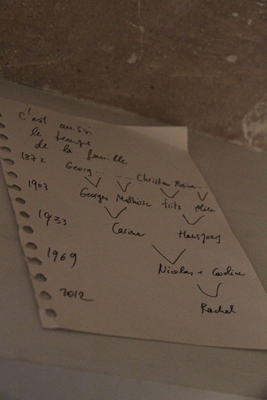 c'est aussi
le temps
de la famille
1872 Georg ... ... Christian Maria ...
1903 Georges Mathilde Fritz Alice
1933 Carina Hansjoerg
1969 Nicolas + Caroline
2012 Rachel